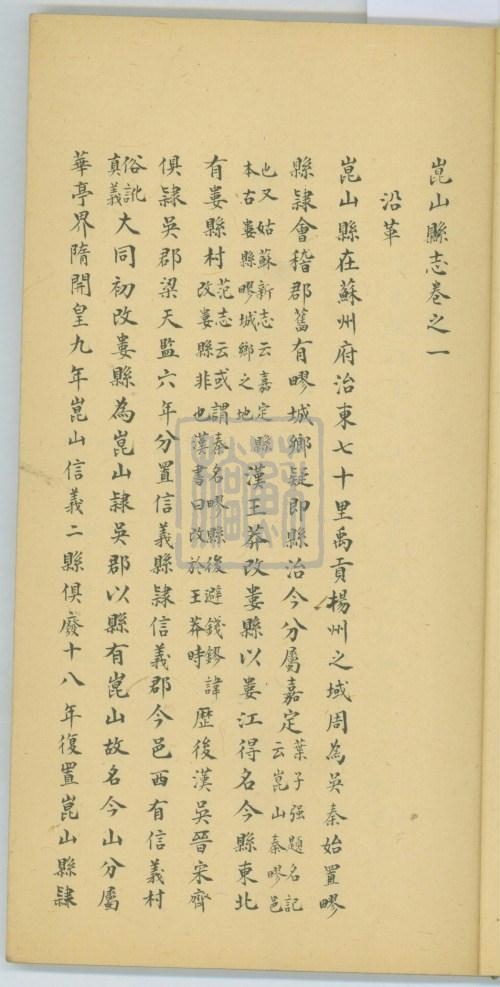 崑山縣志卷之一
沿革
崑山縣在蘇州府治東七十里禹貢揚州之域周為吳秦始置疁
縣隸會稽郡舊有疁城鄉疑即縣治今分屬嘉定葉子强題名記云崑山秦疁邑
也又姑蘇新志云嘉定縣本古婁縣疁城鄉之地漢王莽改婁縣以婁江得名今縣東北
有婁縣村范志云或謂秦名疁縣後避錢鏐諱改婁縣非也漢書曰改於王莽時歷後漢吳晉宋齊
俱隸吳郡梁天監六年分置信義縣隸信義郡今邑西有信義村
俗訛真義大同初改婁縣為崑山隸吳郡以縣有崑山故名今山分屬
華亭界隋開皇九年崑山信義二縣俱廢十八年復置崑山縣隸